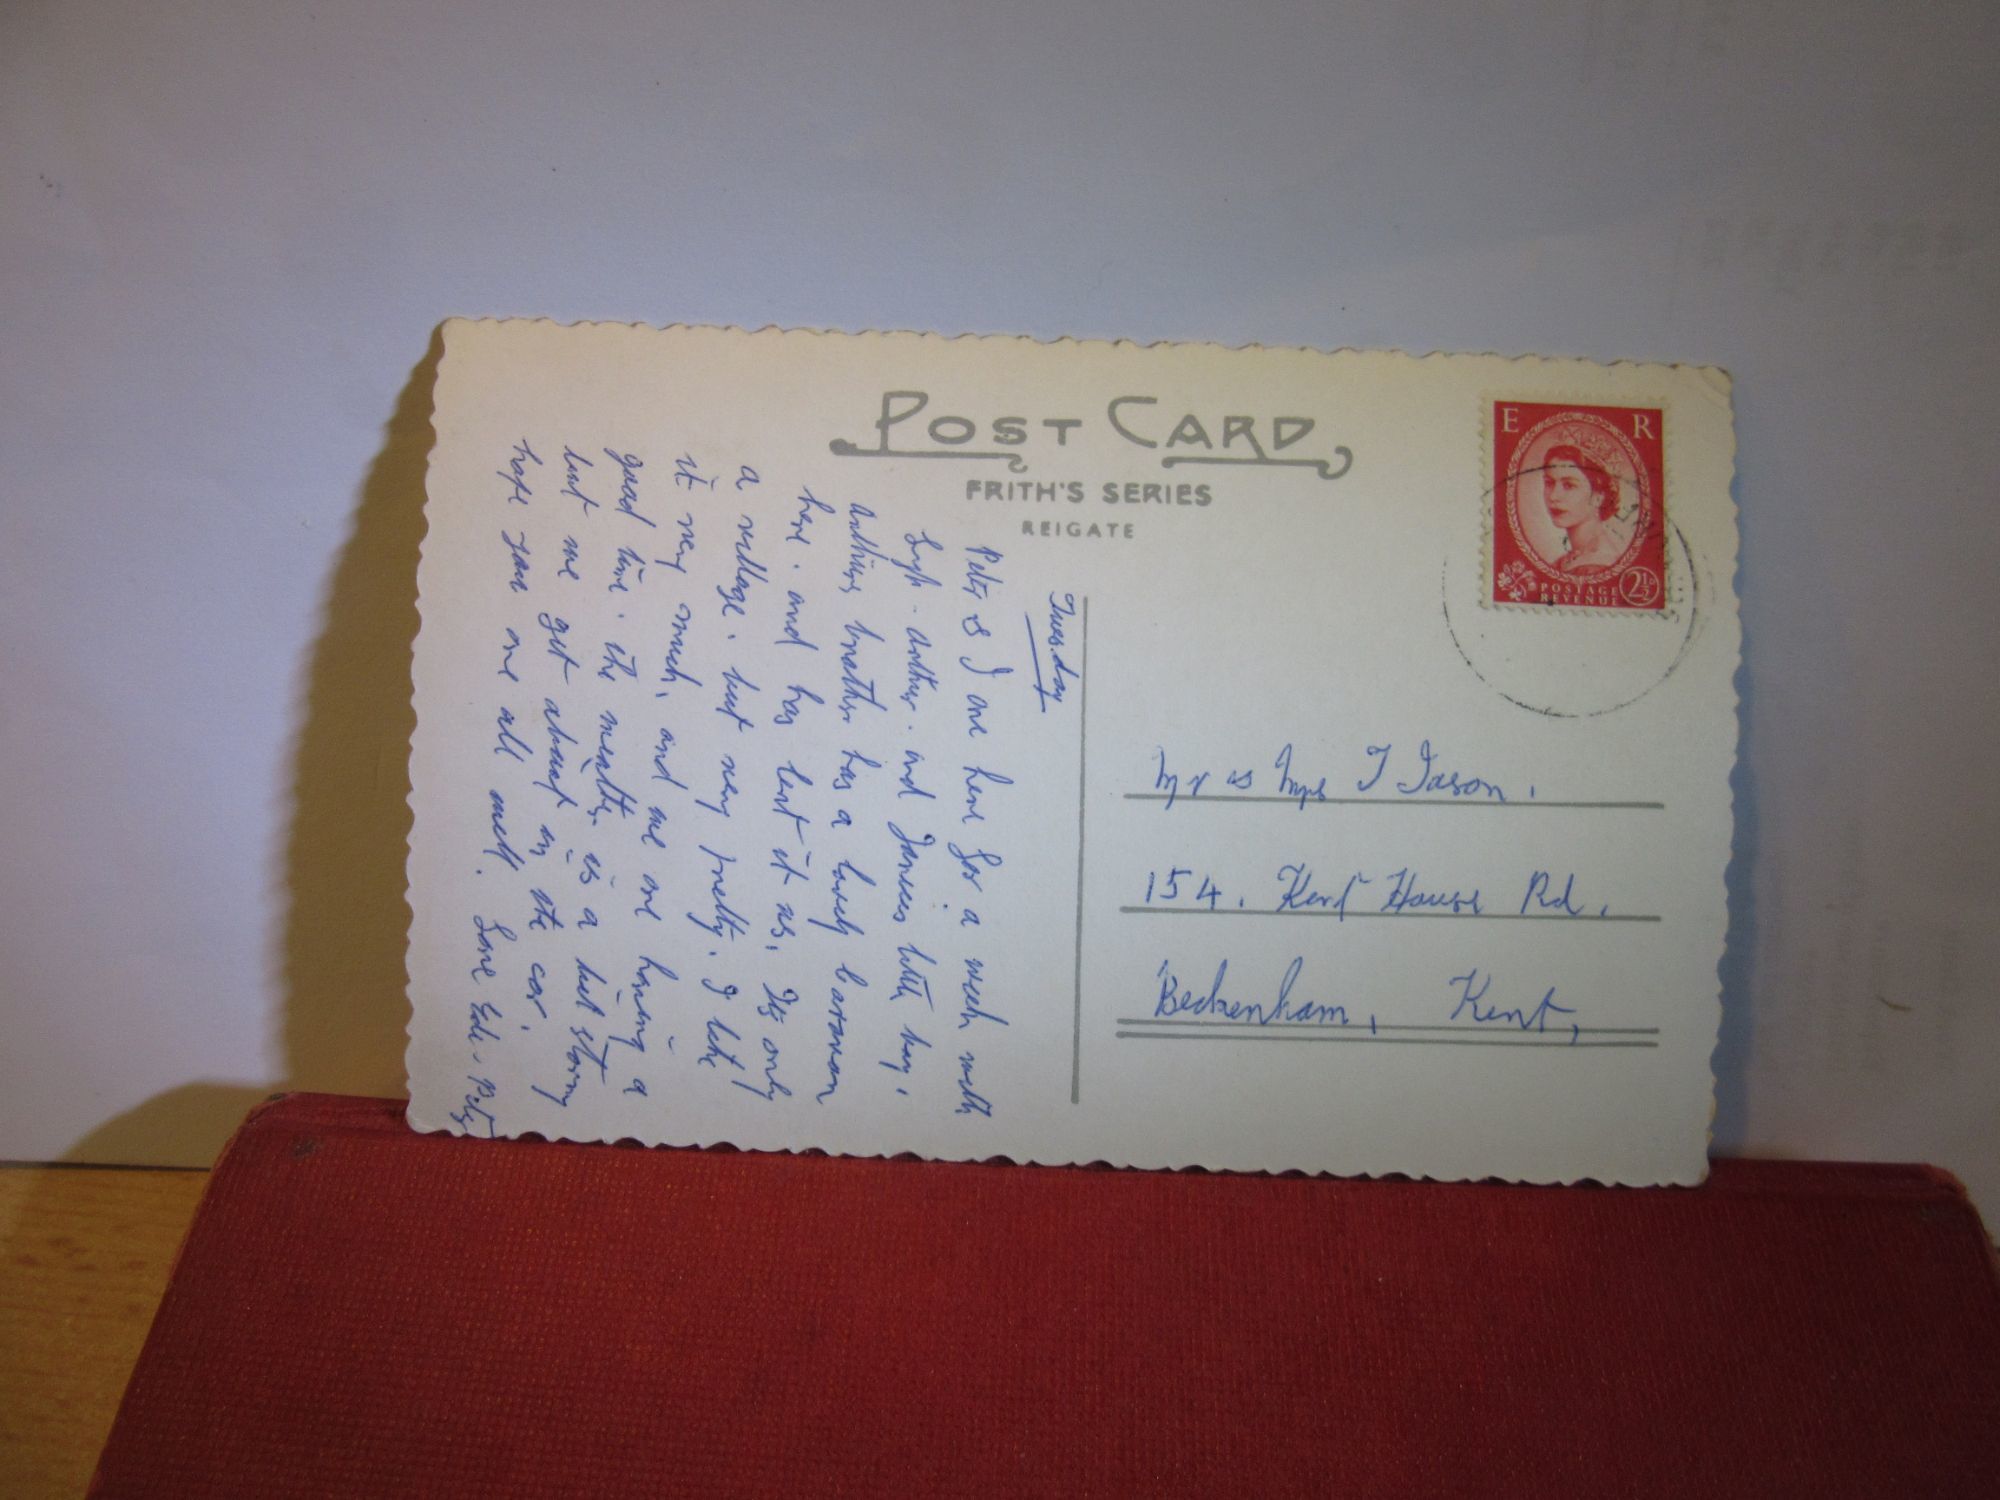 POST CARD
FRITH'S SERIES
REIGATE
E R
POSTAGE
REVENUE
2½D
Tuesday
Peter & I are here for a week with
Arthur. and little boy.
Arthurs brother has a lovely caravan
here. and has lent it us. Its only
a village. but very pretty. I like
it very much, and we are having a
good time. the weather is a bit stormy
but we get about in the car.
hope you are all well. Love Ede. Peter
Mr & Mrs T Jason.
154. Kent House Rd.
Beckenham, Kent,